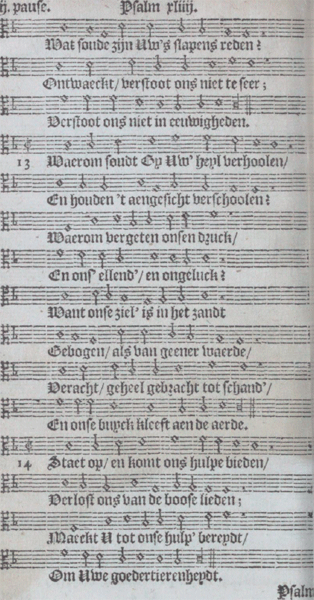 ij. pause. Psalm xliiij.
Wat soude zijn Uw's slapens reden?
Ontwaeckt/ verstoot ons niet te seer;
Verstoot ons niet in eeuwigheden.
13 Waerom soudt Gy Uw' heyl verhoolen/
En houden 't aengesicht verschoolen?
Waerom vergeten onsen druck/
En ons' ellend'/ en ongeluck?
Want onse ziel' is in het zandt
Gebogen/ als van geener waerde/
Veracht/ geheel gebracht tot schand'/
En onse buyck kleeft aen de aerde.
14 Staet op/ en komt ons hulpe bieden/
Verlost ons van de boose lieden;
Maeckt U tot onse hulp' bereydt/
Om Uwe goedertierenheydt.
Psalm